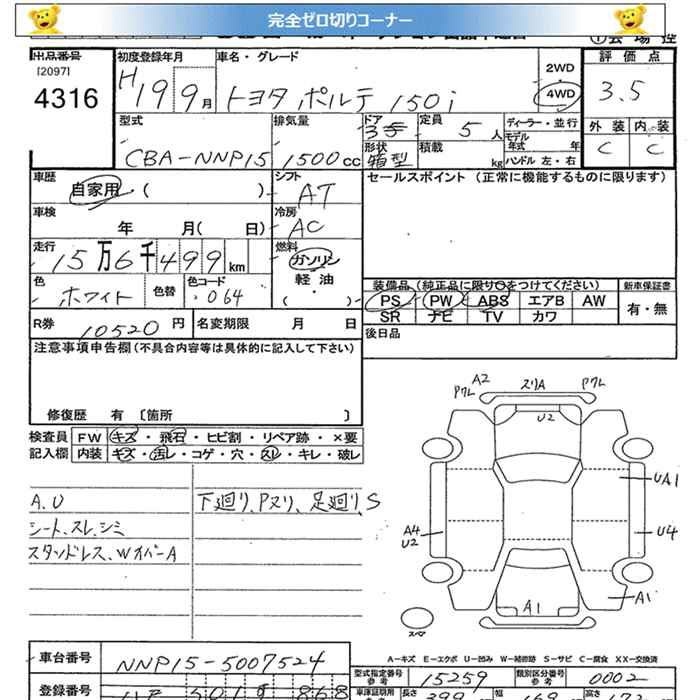 完全ゼロ切りコーナー
出品番号
[2097]
4316
初度登録年月
H19 9月
車名・グレード
トヨタ ポルテ 150i
2WD
4WD
評価点
3.5
外装 内装
C C
型式
CBA-NNP15
排気量
1500cc
ドア
形状
箱型
定員
5人
積載
kg
ディーラー・並行
モデル
年式 年
ハンドル 左・右
車歴
自家用 ( )
シフト
AT
セールスポイント (正常に機能するものに限ります)
車検
年 月( 日)
冷房
AC
走行
15万6千499km
燃料
ガソリン
軽油
( )
色
ホワイト
色替
色コード
064
装備品(純正品に限り○をつけてください)
PS PW ABS エアB AW
SR ナビ TV カワ
新車保証書
有・無
R券
10520円
名変期限 月 日
後日品
注意事項申告欄(不具合内容等は具体的に記入して下さい)
修復歴 有 〔箇所 〕
検査員
記入欄
FW キズ・飛石・ヒビ割・リペア跡・×要
内装 キズ・汚レ・コゲ・穴・スレ・キレ・破レ
A.U
シート、スレ、シミ
スタッドレス、WイパーA
下廻り、Pヌリ、足廻り、S
A2 スリA
Pワレ Pワレ
U2
UA1
A4
U2
U4
A1
A1
スペア
A-キズ E-エクボ U-凹み W-補修跡 S-サビ C-腐食 XX-交換済
車台番号
NNP15-5007524
型式指定番号
参考
15259
類別区分番号
参考
0002
登録番号
車庫証明用
長さ
399
幅
169
高さ
172